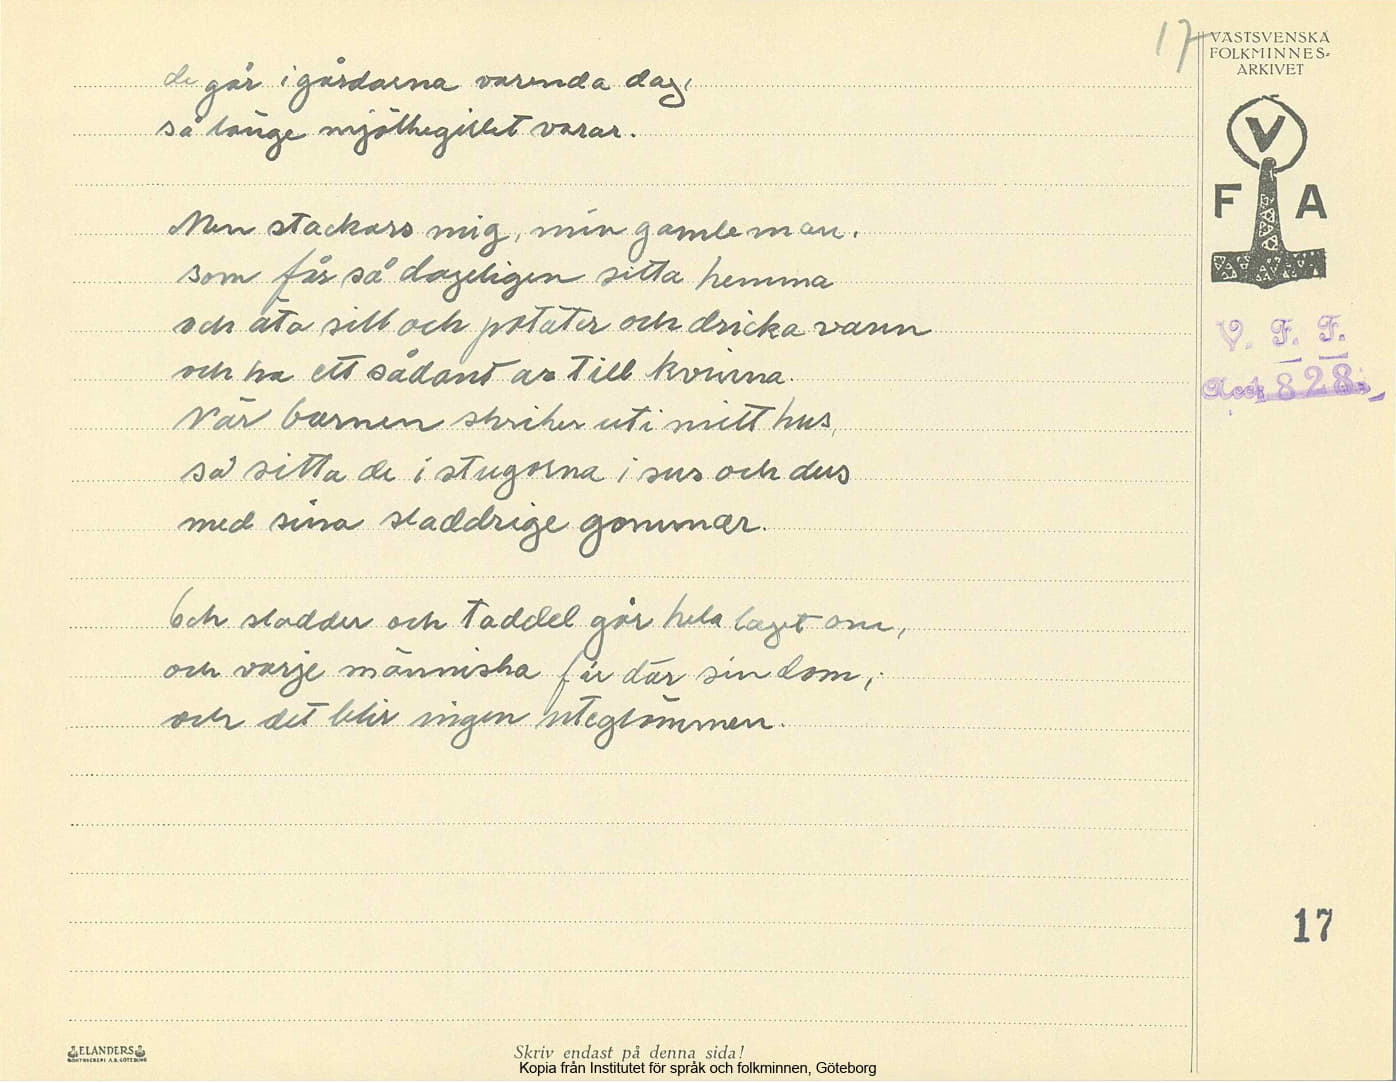 17
VÄSTSVENSKA
FOLKMINNES-
ARKIVET
V
F A
V. F. F.
Acc. 828:
de går i gårdarna varenda dag,
så länge mjölkegillet varar.
Men stackars mig, min gamle man,
som får så dageligen sitta hemma
och äta sill och potater och dricka vann
och ha ett sådant as till kvinna.
När barnen skriker uti mitt hus,
så sitta de i stugorna i sus och dus
med sina sladdrige gommar.
Och sladder och taddel går hela laget om,
och varje människa får där sin dom,
och det blir ingen uteglömmen.
17
ELANDERS
BOKTRYCKERI A.B. GÖTEBORG
Skriv endast på denna sida!
Kopia från Institutet för språk och folkminnen, Göteborg